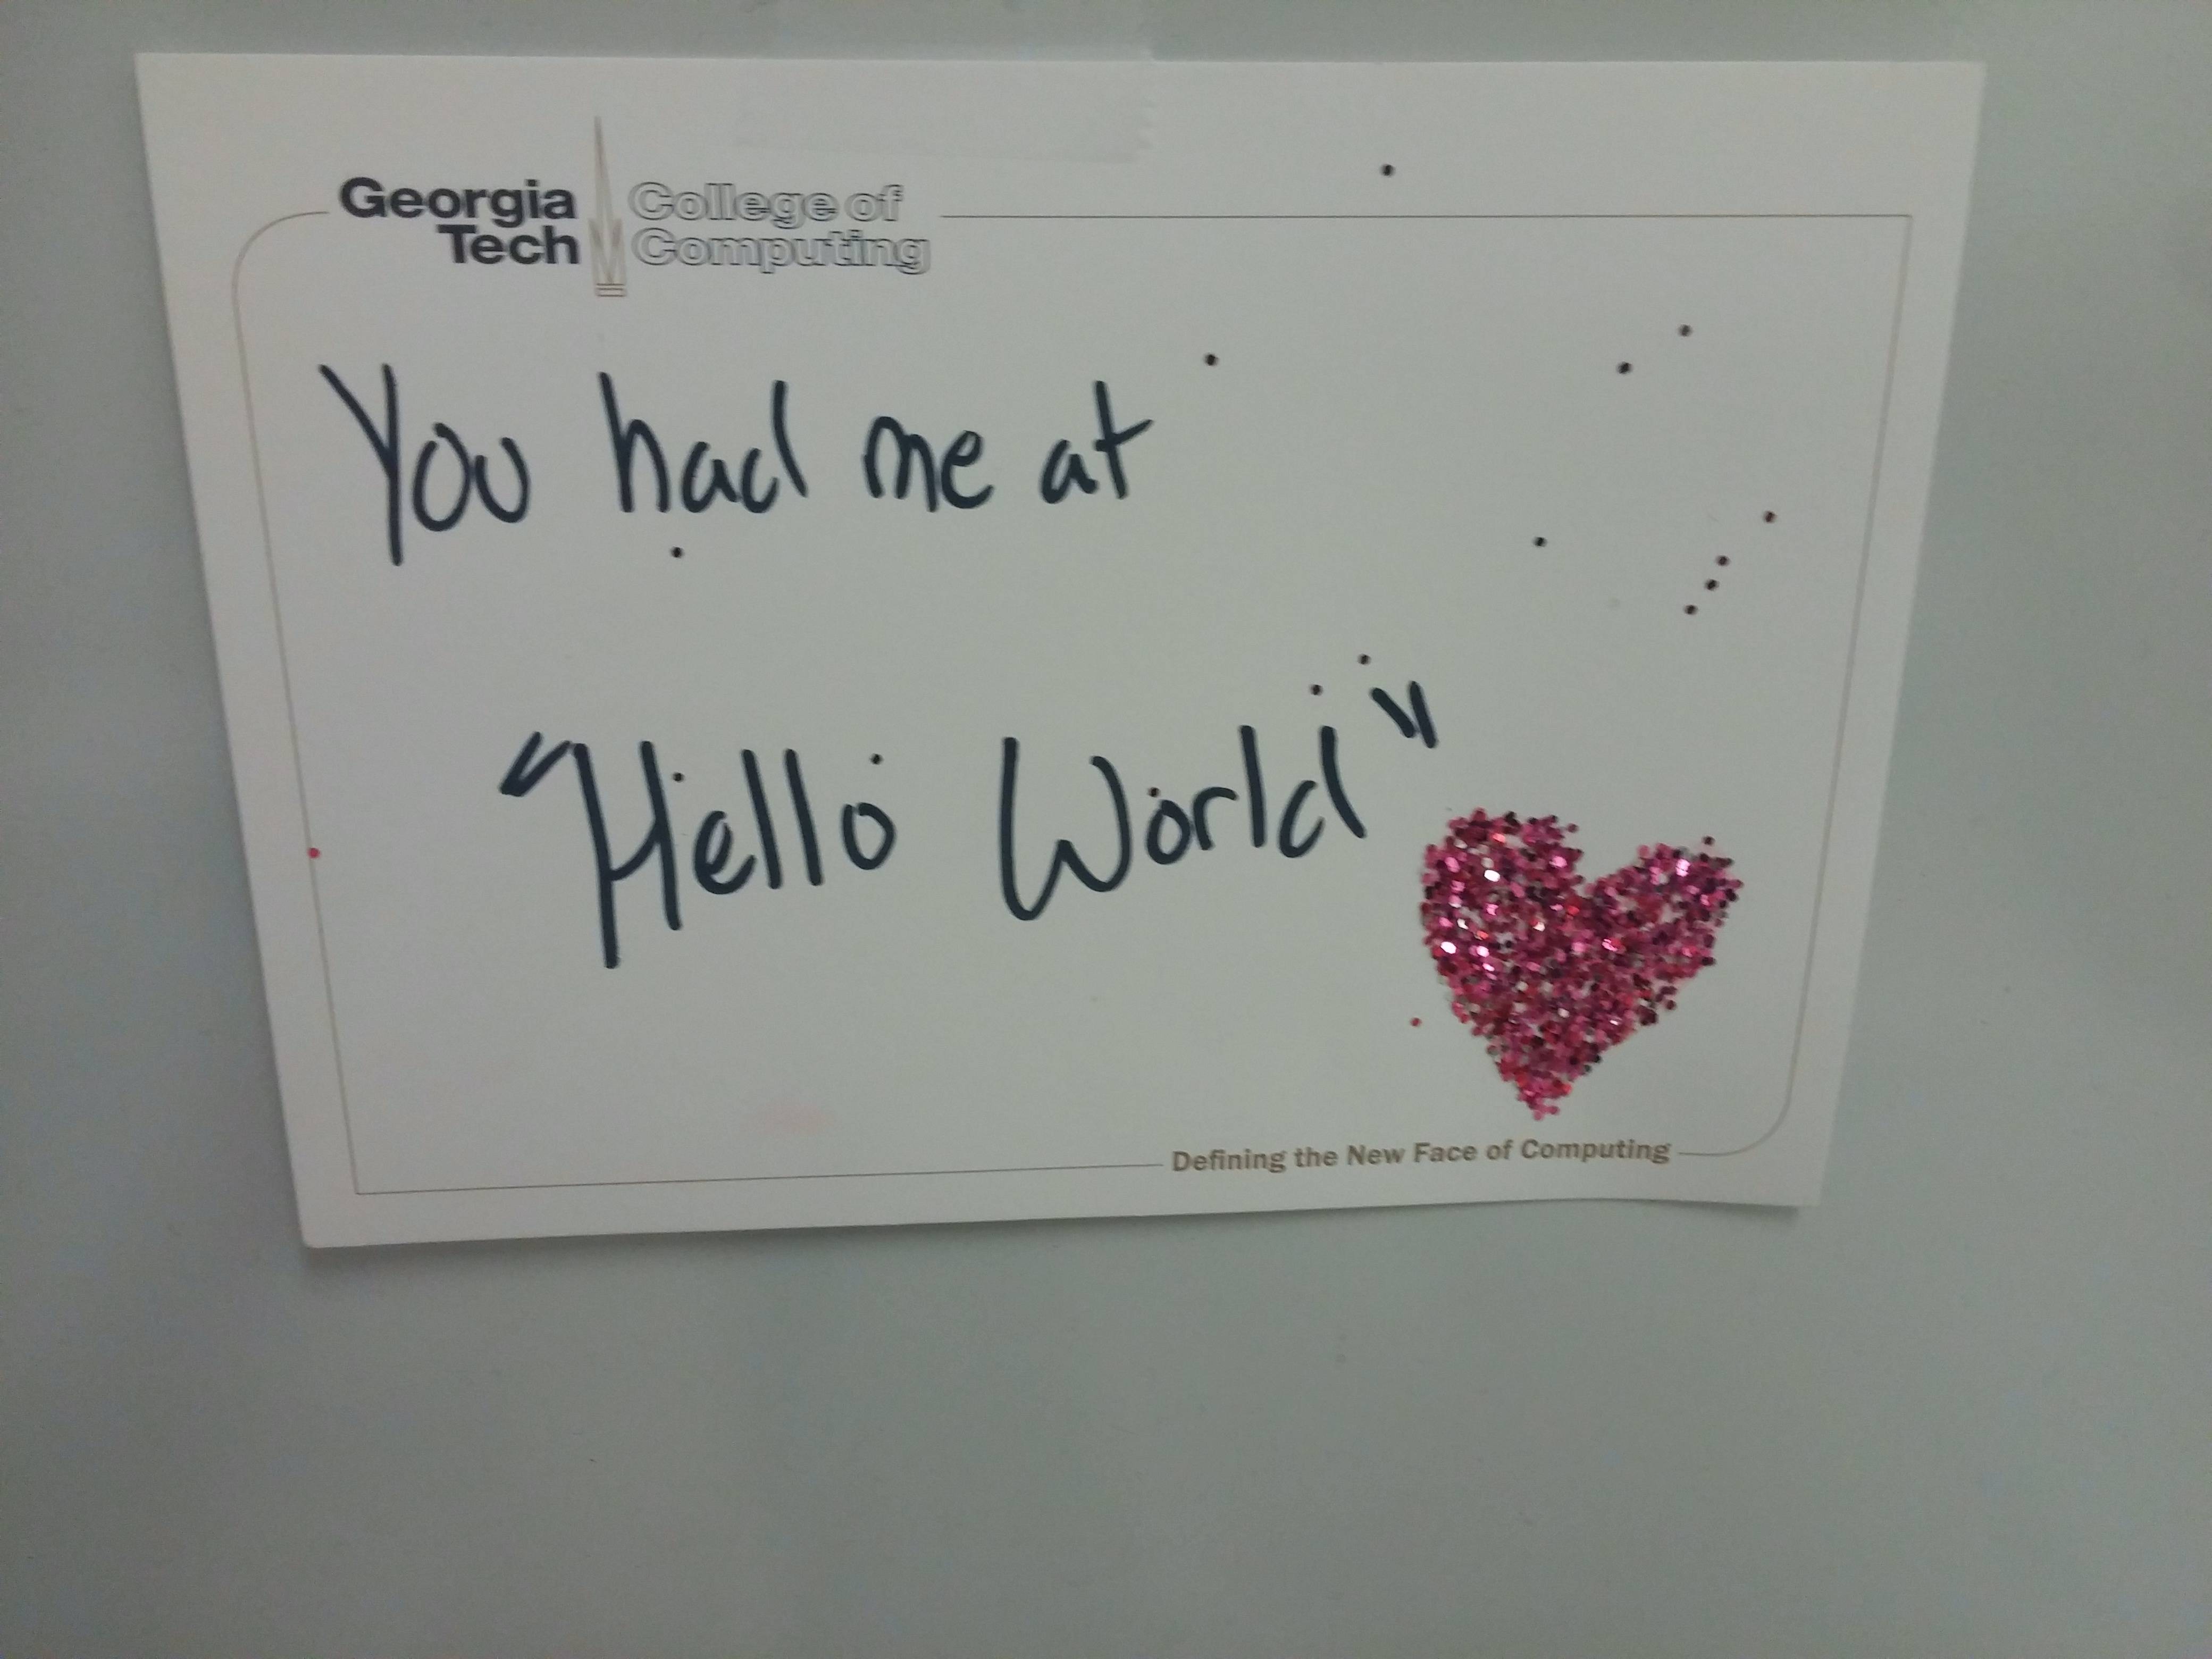 Georgia Tech
College of Computing
You had me at
"Hello World"
Defining the New Face of Computing